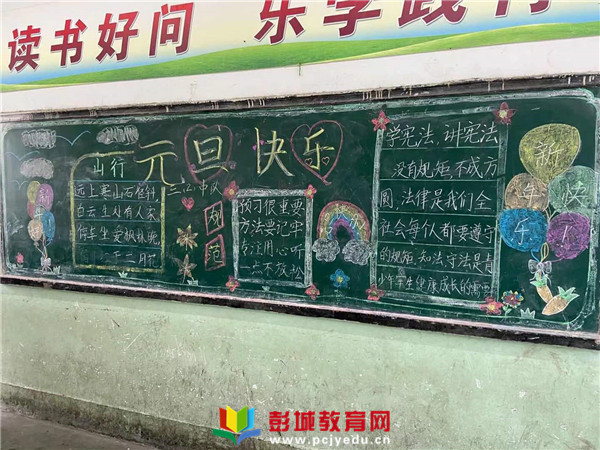 读书好问 乐学践行
元旦快乐
山行
远上寒山石径斜,
白云生处有人家,
停车坐爱枫林晚,
十二月花
三(2)中队
规范
新年
预习很重要
方法要记牢
专注用心听
一点不放松
学宪法,讲宪法
没有规矩,不成方
圆,法律是我们全
社会每一个人都要遵守
的规矩,知法守法是青
少年学生健康成长的需要
新年快乐!
彭城教育网
www.pcjyedu.cn